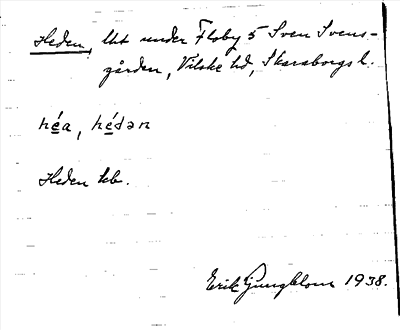 Heden, lht under Floby 5 Sven Svens-
gården, Vilske hd, Skaraborgs l.
héa, hédan
Heden kb.
Erik Ljungblom 1938.